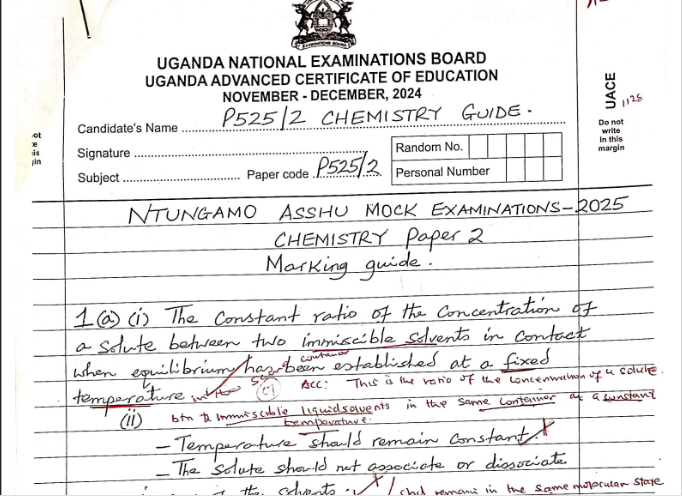 UGANDA NATIONAL EXAMINATIONS BOARD
UGANDA ADVANCED CERTIFICATE OF EDUCATION
NOVEMBER - DECEMBER, 2024
UACE
1125
Do not
write
in this
margin
ot
is
in
Candidate's Name P525/2 CHEMISTRY GUIDE.
Signature
Random No.
Subject Paper code P525/2
Personal Number
NTUNGAMO ASSHU MOCK EXAMINATIONS-2025
CHEMISTRY Paper 2
Marking guide.
1(a) (i) The Constant ratio of the Concentration of
a Solute between two immiscible Solvents in Contact
container
when equilibrium has been established at a fixed
temperature in the
Acc: This is the ratio of the concentration of a solute
(ii) btn 2 immiscible liquid solvents in the same container at a constant
temperature.
- Temperature should remain Constant
- The Solute should not associate or dissociate
the solvents. remain in the same molecular state